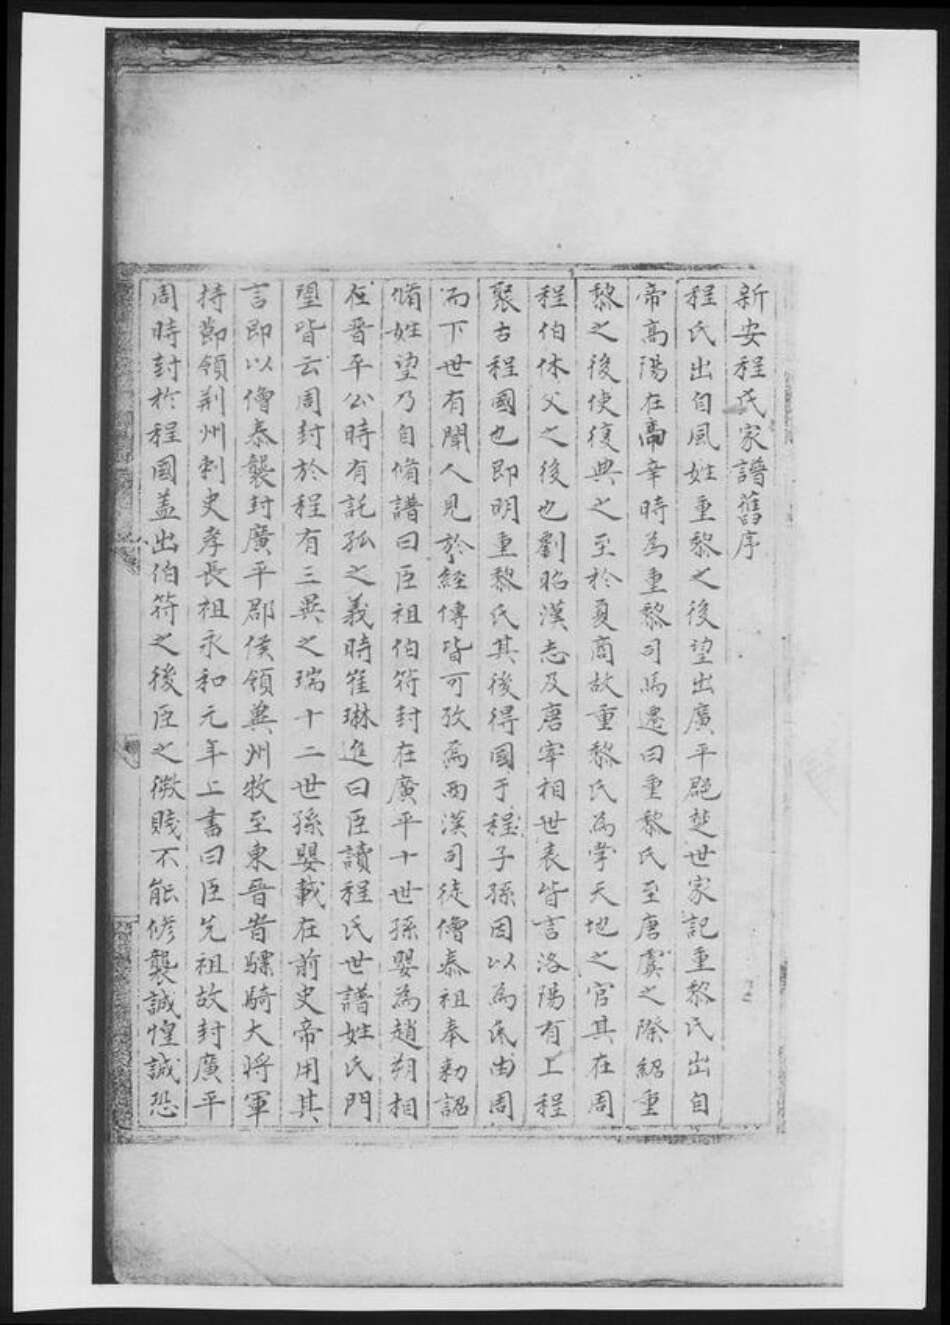 新安程氏家譜舊序
程氏出自風姓重黎之後望出廣平郡楚世家記重黎氏出自
帝高陽在高辛時為重黎司馬遷曰重黎氏至唐虞之際紹重
黎之後使復典之至於夏商故重黎氏為掌天地之官其在周
程伯休父之後也劉昭漢志及唐宰相世表皆言洛陽有上程
聚古程國也即明重黎氏其後得國于程子孫因以為氏由周
而下世有聞人見於經傳皆可攷焉西漢司徒僧泰祖奉勅詔
脩姓望乃自脩譜曰臣祖伯符封在廣平十世孫嬰為趙朔相
在晉平公時有託孤之義時崔琳進曰臣讀程氏世譜姓氏門
望皆云周封於程有三異之瑞十二世孫嬰載在前史帝用其
言即以僧泰襲封廣平郡侯領冀州牧至東晉昔驃騎大將軍
持節領荊州刺史孝長祖永和元年上書曰臣先祖故封廣平
周時封於程國盖出伯符之後臣之微賤不能修襲誠惶誠恐